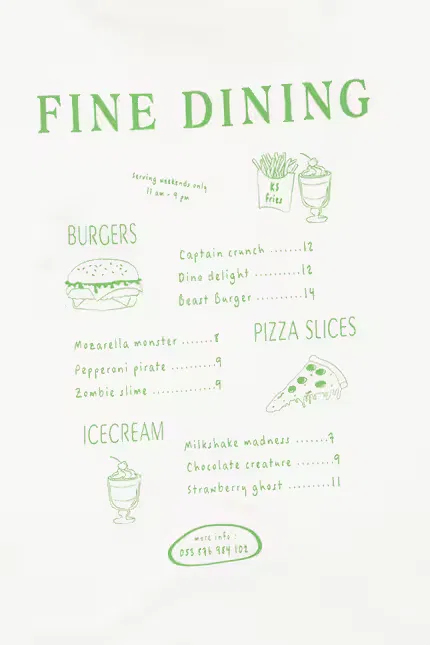 FINE DINING
serving weekends only
11 am - 9 pm
KS
fries
BURGERS
Captain crunch .......12
Dino delight ..........12
Beast Burger ..........14
PIZZA SLICES
Mozarella monster .......8
Pepperoni pirate ..........9
Zombie slime ..............9
ICECREAM
Milkshake madness .......7
Chocolate creature ........9
Strawberry ghost ..........11
more info :
055 876 984 102